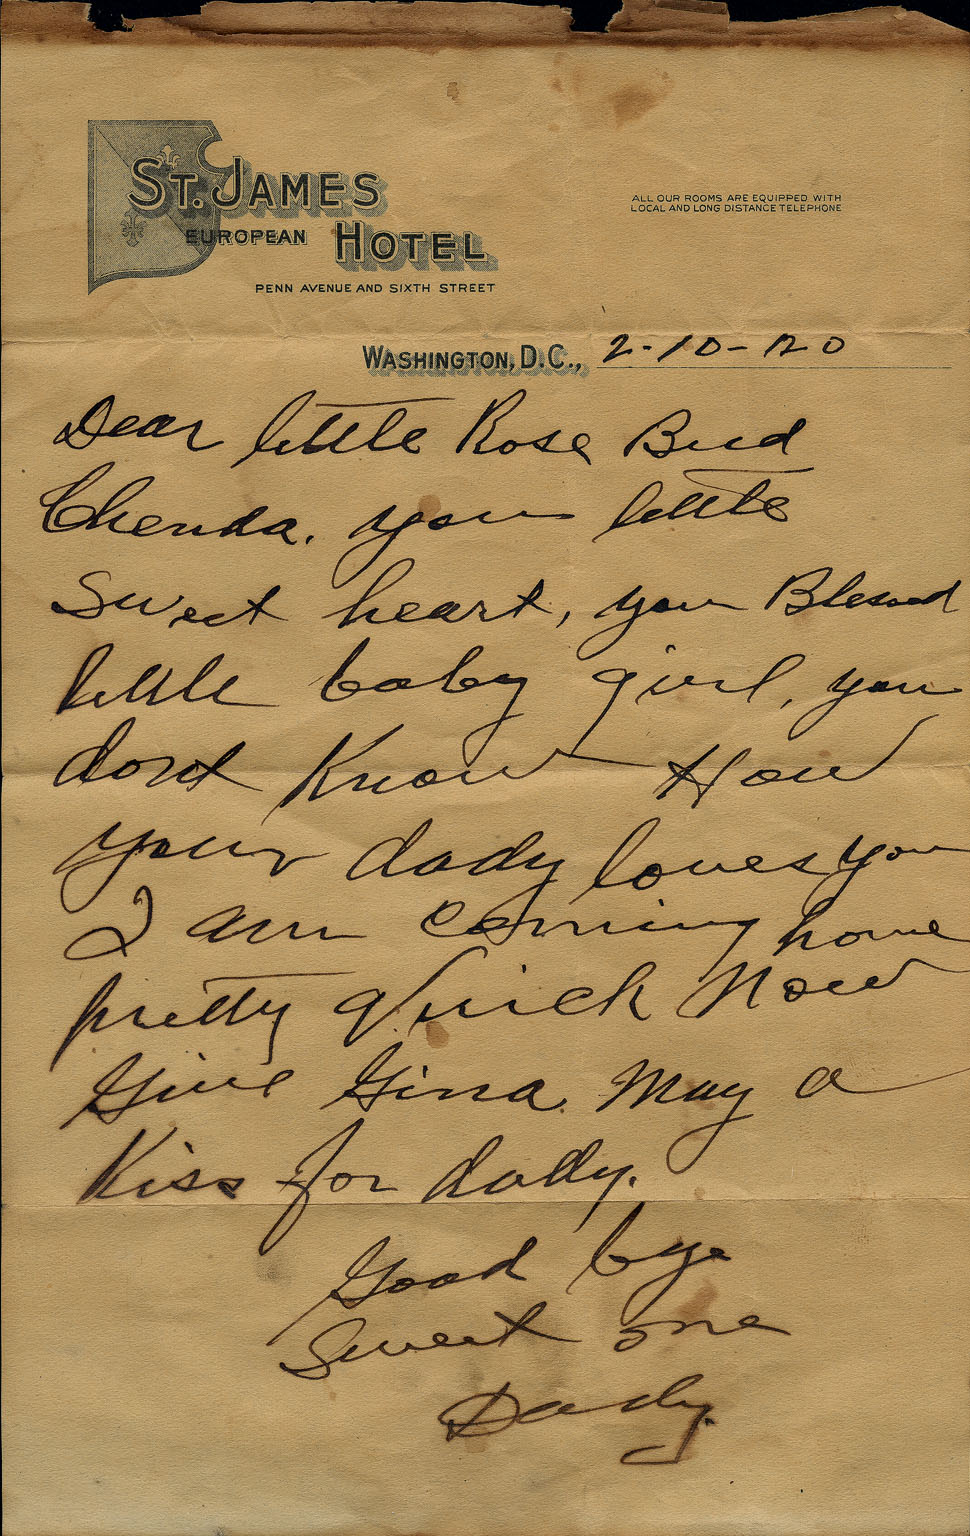 St. James
European Hotel
Penn Avenue and Sixth Street
All our rooms are equipped with
local and long distance telephone
Washington, D.C., 2-10-20
Dear little Rose Bud
Chenda. you little
Sweet heart, you Blessed
little baby girl, you
dont Know How
your dady loves you
I am coming home
pretty quick Now
Give Gina May a
Kiss for dady.
Good bye
Sweet one
Dady.